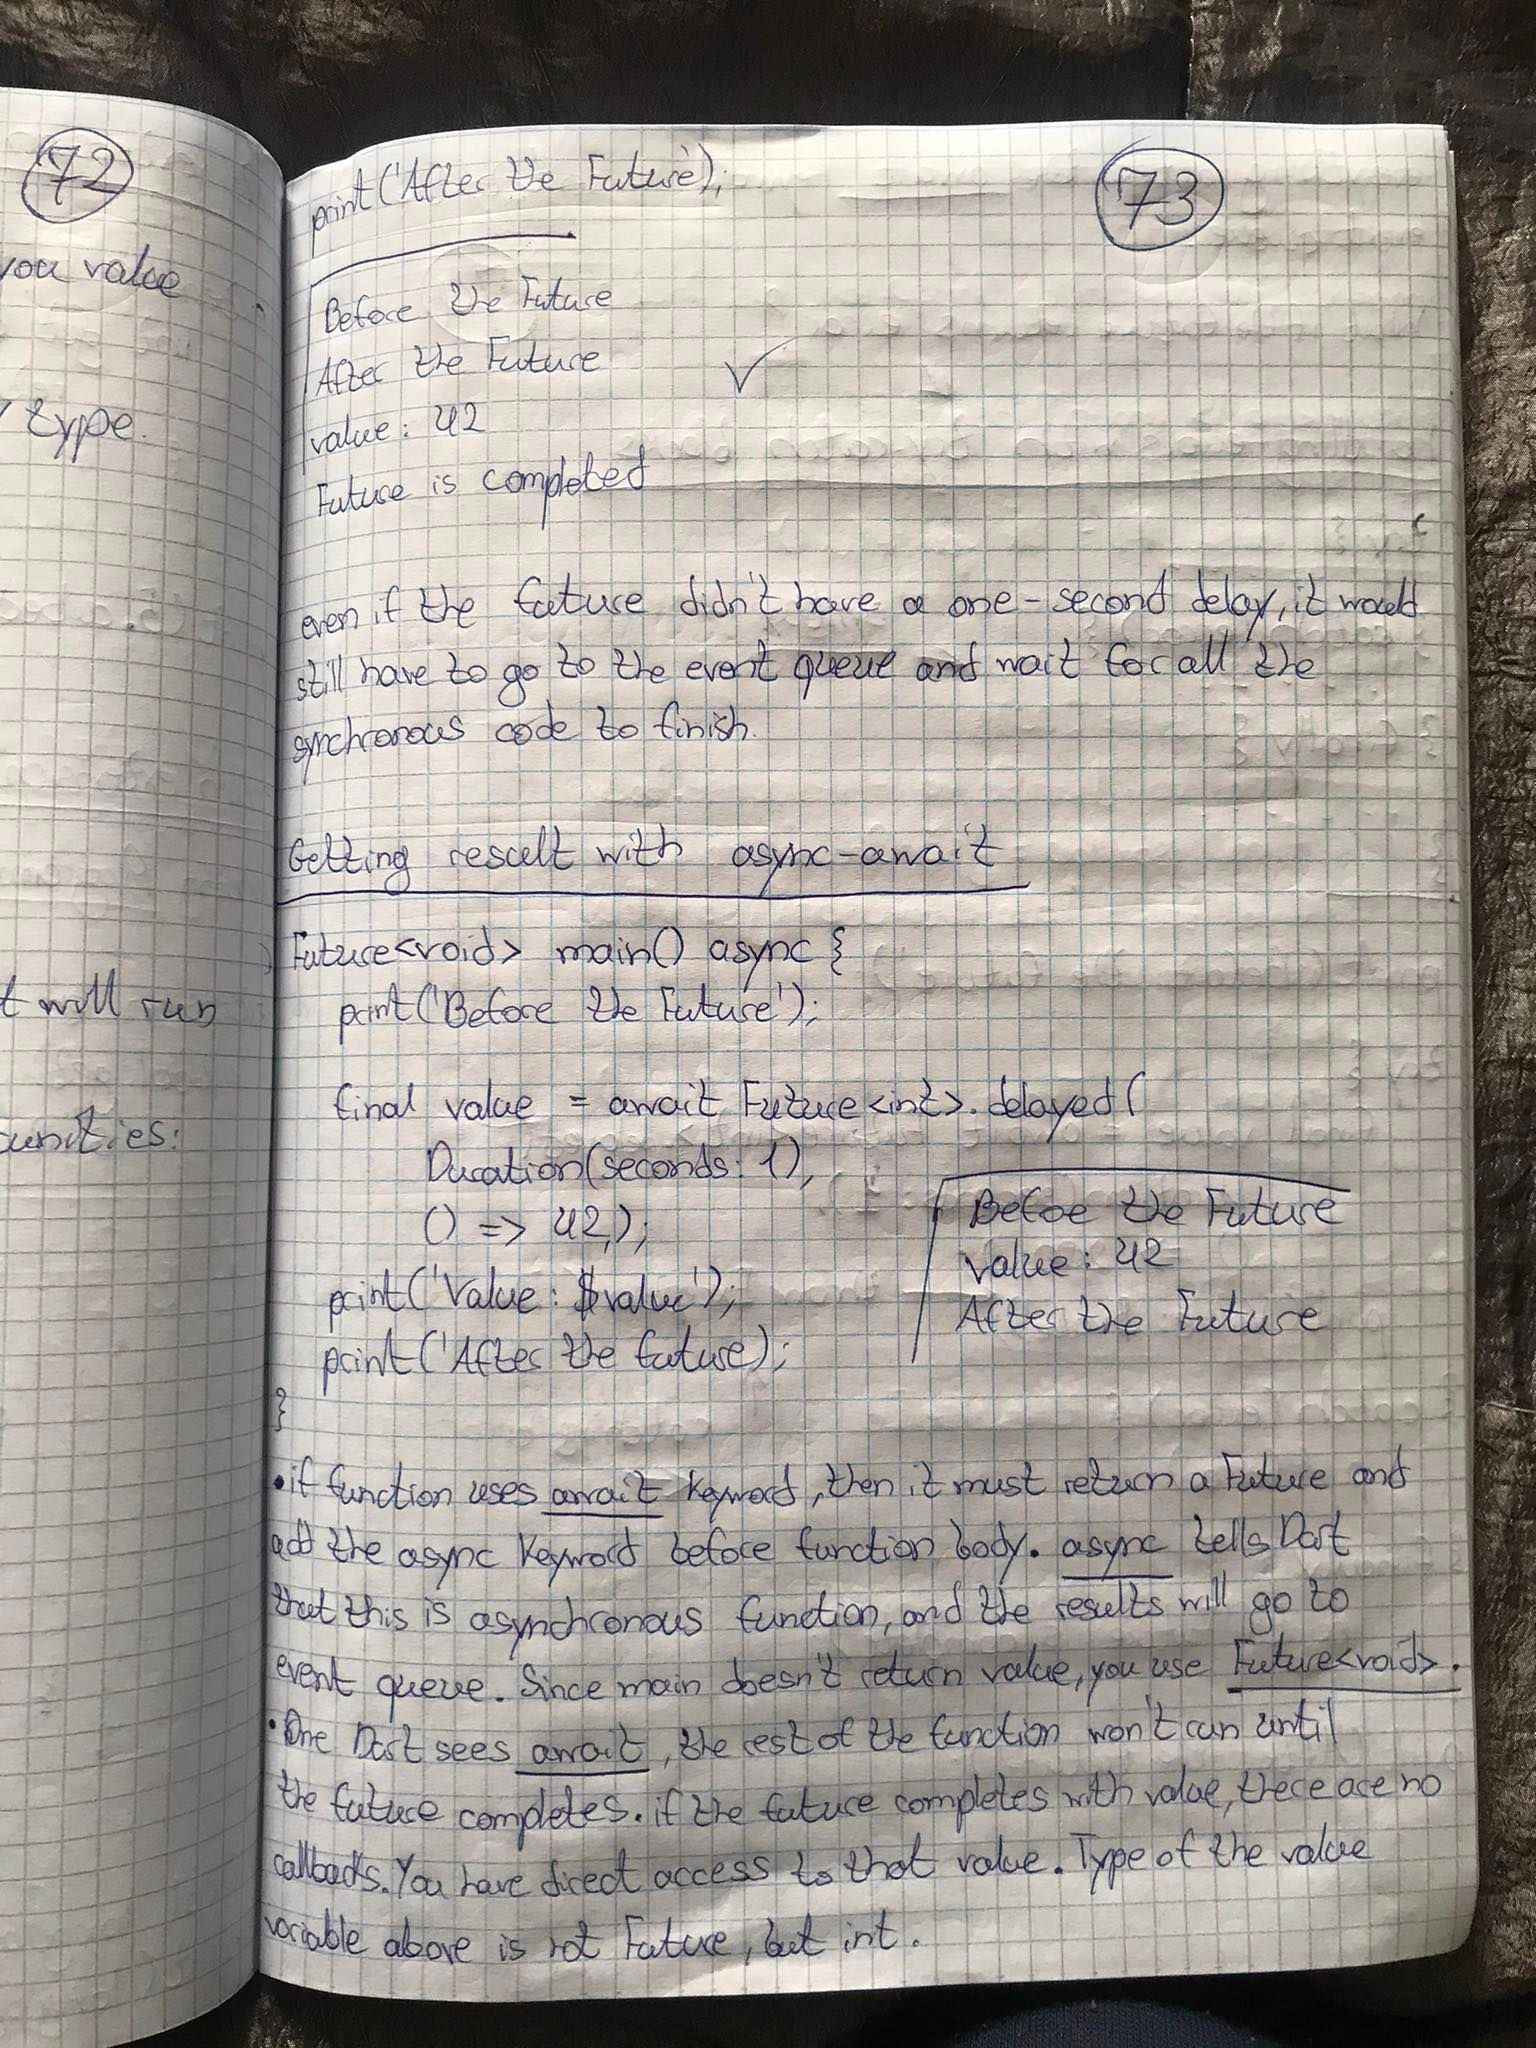 72
you value
type.
t will run
unities:
73
print('After the Future');
Before the Future
After the Future
value: 42
Future is completed
even if the future didn't have a one-second delay, it would
still have to go to the event queue and wait for all the
synchronous code to finish.
Getting result with async-await
Future<void> main() async {
print('Before the Future');
final value = await Future<int>.delayed(
Duration(seconds: 1),
() => 42,);
print('Value: $value');
print('After the future);
}
Befoe the Future
value: 42
After the Future
• if function uses await keyword, then it must return a Future and
add the async keyword before function body. async tells Dart
that this is asynchronous function, and the results will go to
event queue. Since main doesn't return value, you use Future<void>.
• One Dart sees await, the rest of the function won't run until
the future completes. if the future completes with value, there are no
callbacks. You have direct access to that value. Type of the value
variable above is not Future, but int.